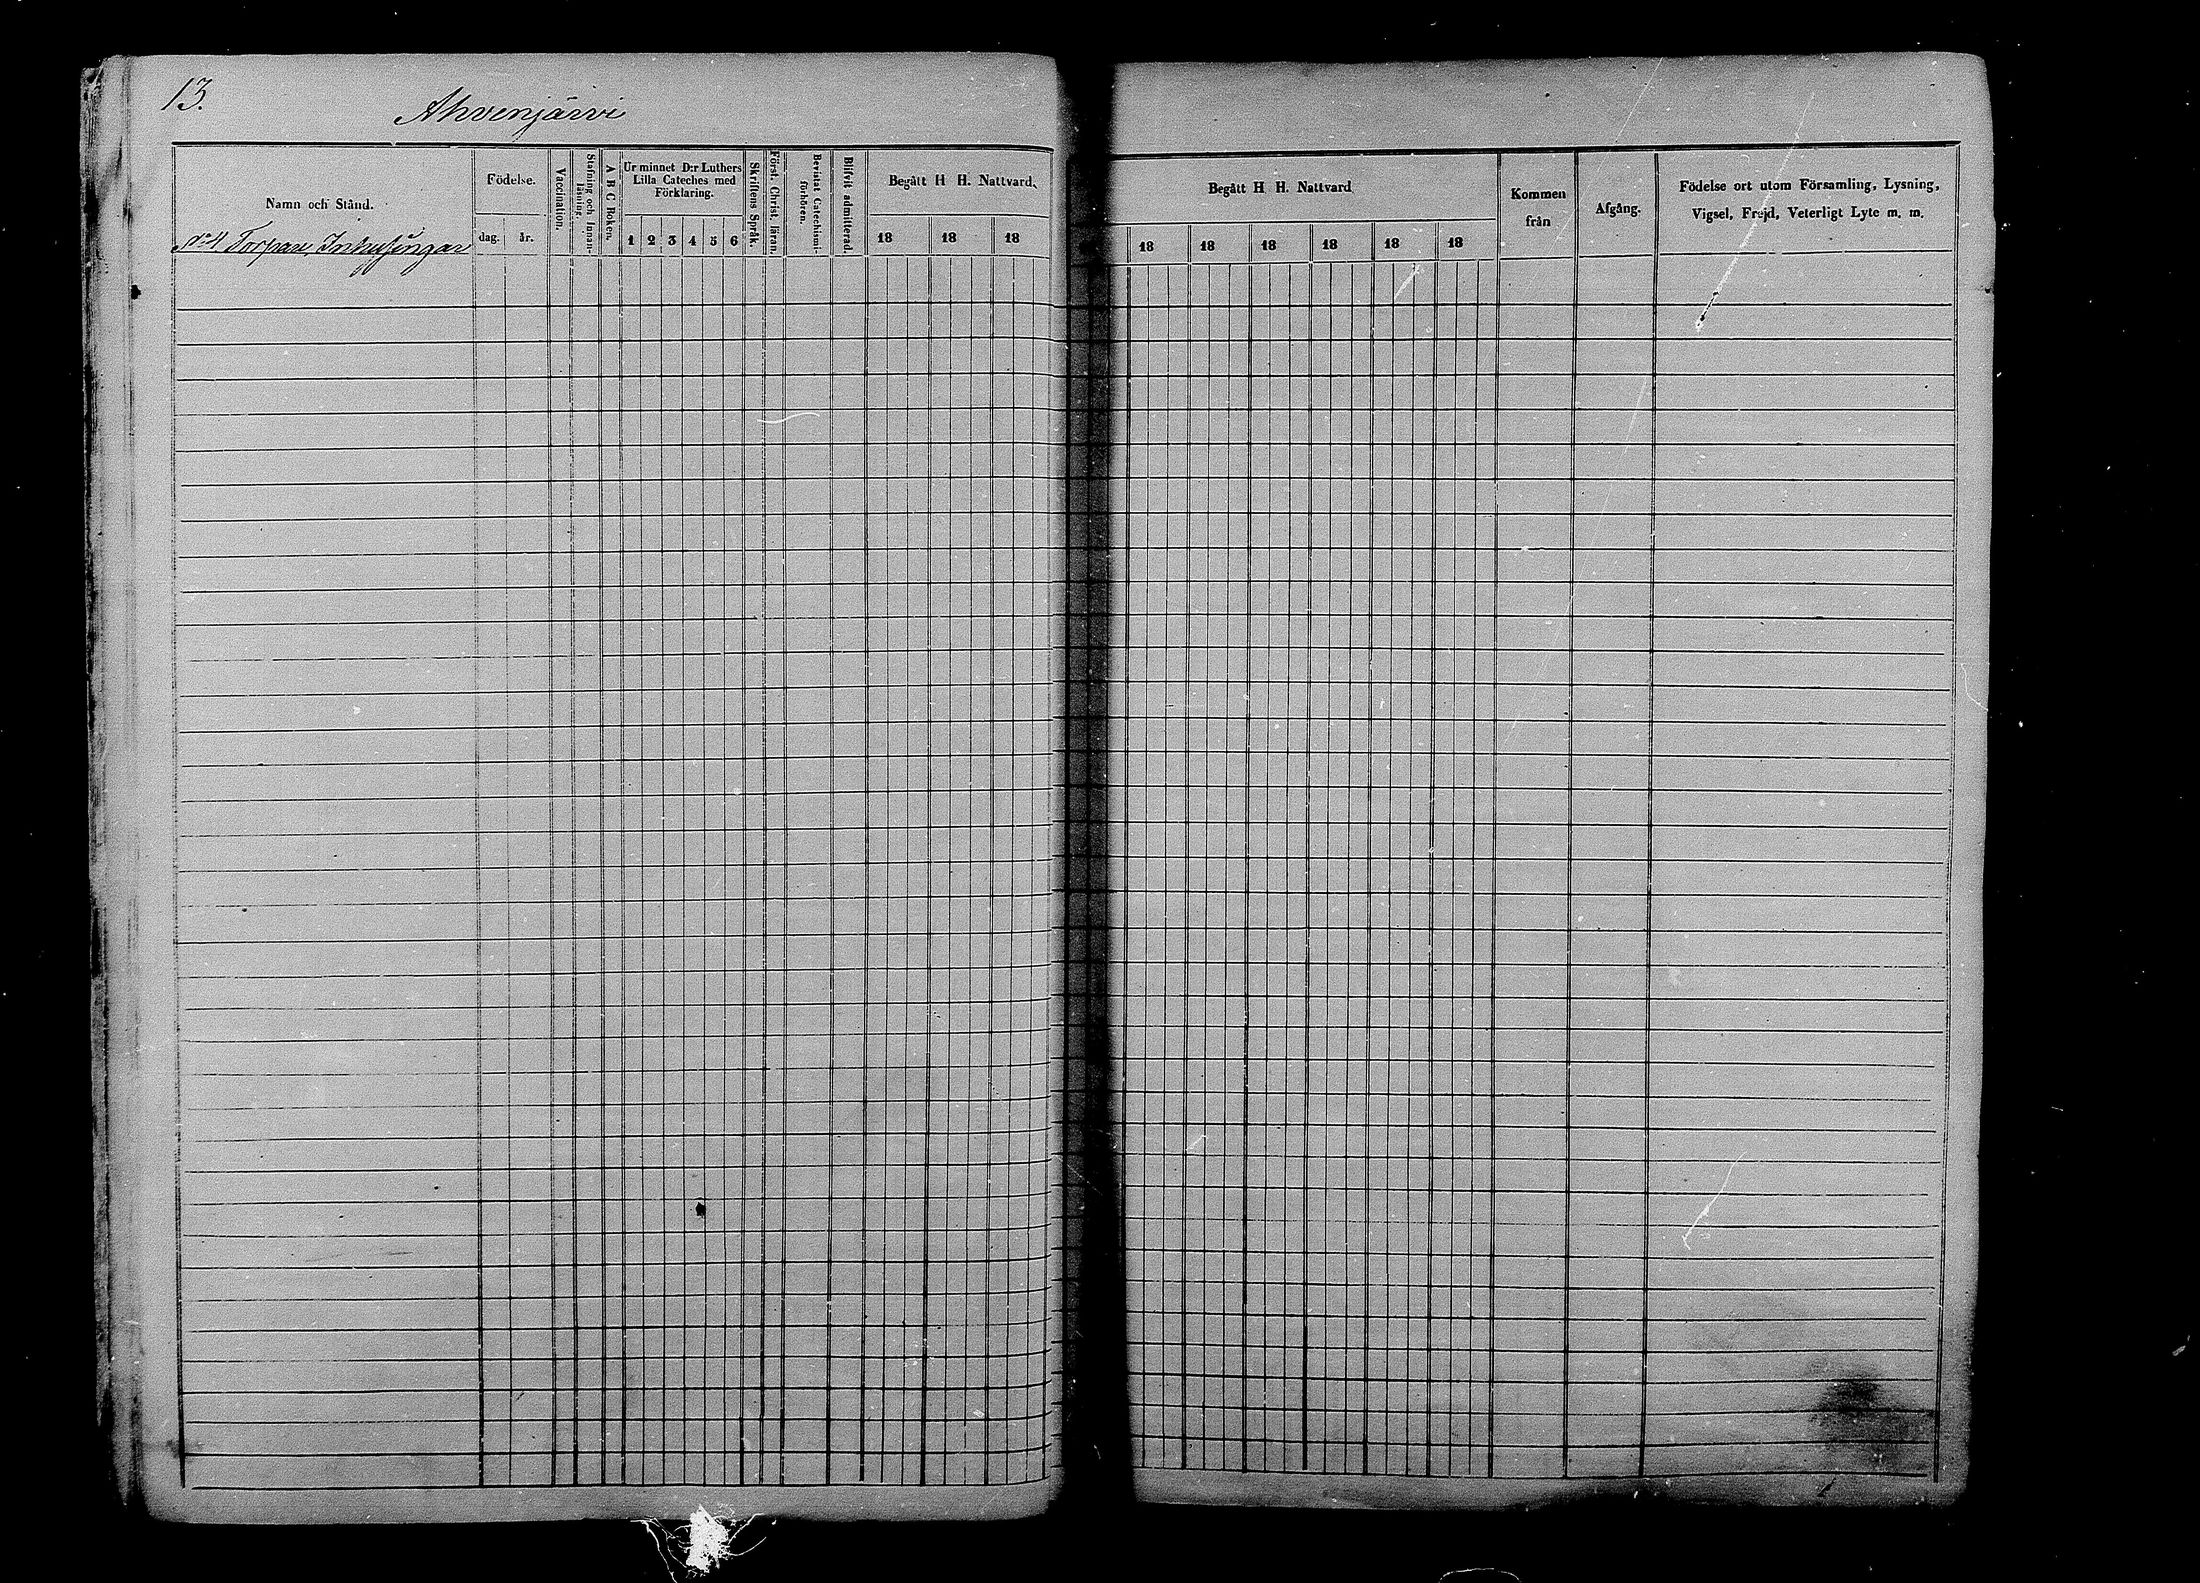 13.
Ahvenjärvi
Namn och Stånd.
Födelse.
dag.
år.
Vaccination.
Stafning och Innan-
läsning.
A B C Boken.
Ur minnet D:r Luthers
Lilla Cateches med
Förklaring.
1 2 3 4 5 6
Skriftens Språk.
Först. Christ. läran.
Bevistat Catechismi-
förhören.
Blifvit admitterad.
Begått H H. Nattvard.
18 18 18
No 4 Torpare
Begått H H. Nattvard
18 18 18 18 18 18
Kommen
från
Afgång.
Födelse ort utom Församling, Lysning,
Vigsel, Frejd, Veterligt Lyte m. m.